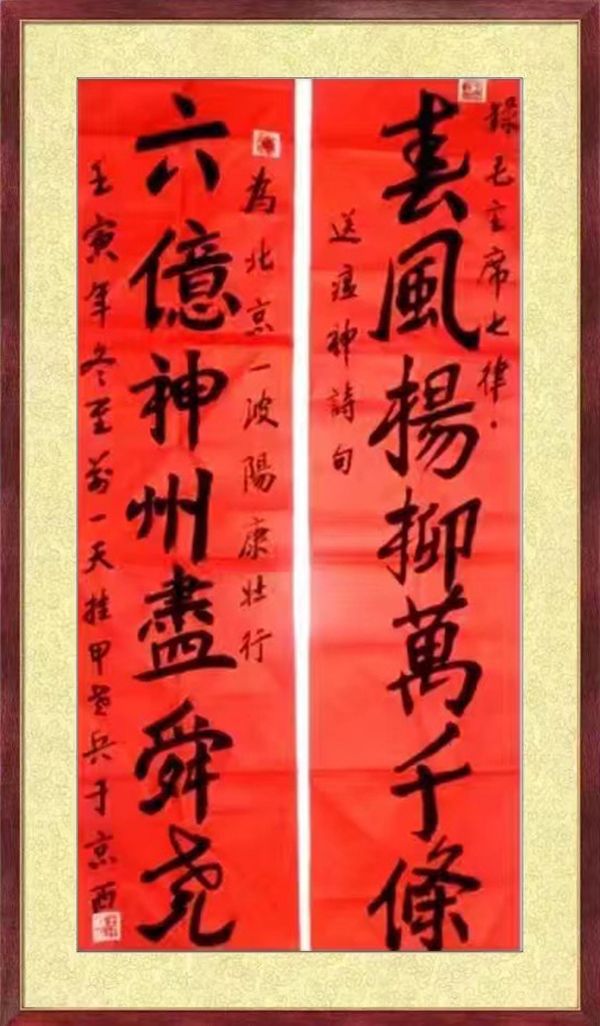 録毛主席七律·
春風楊柳萬千條
送瘟神詩句
為北京一波陽康壯行
六億神州盡舜尧
壬寅年冬至前一天挂甲老兵于京西